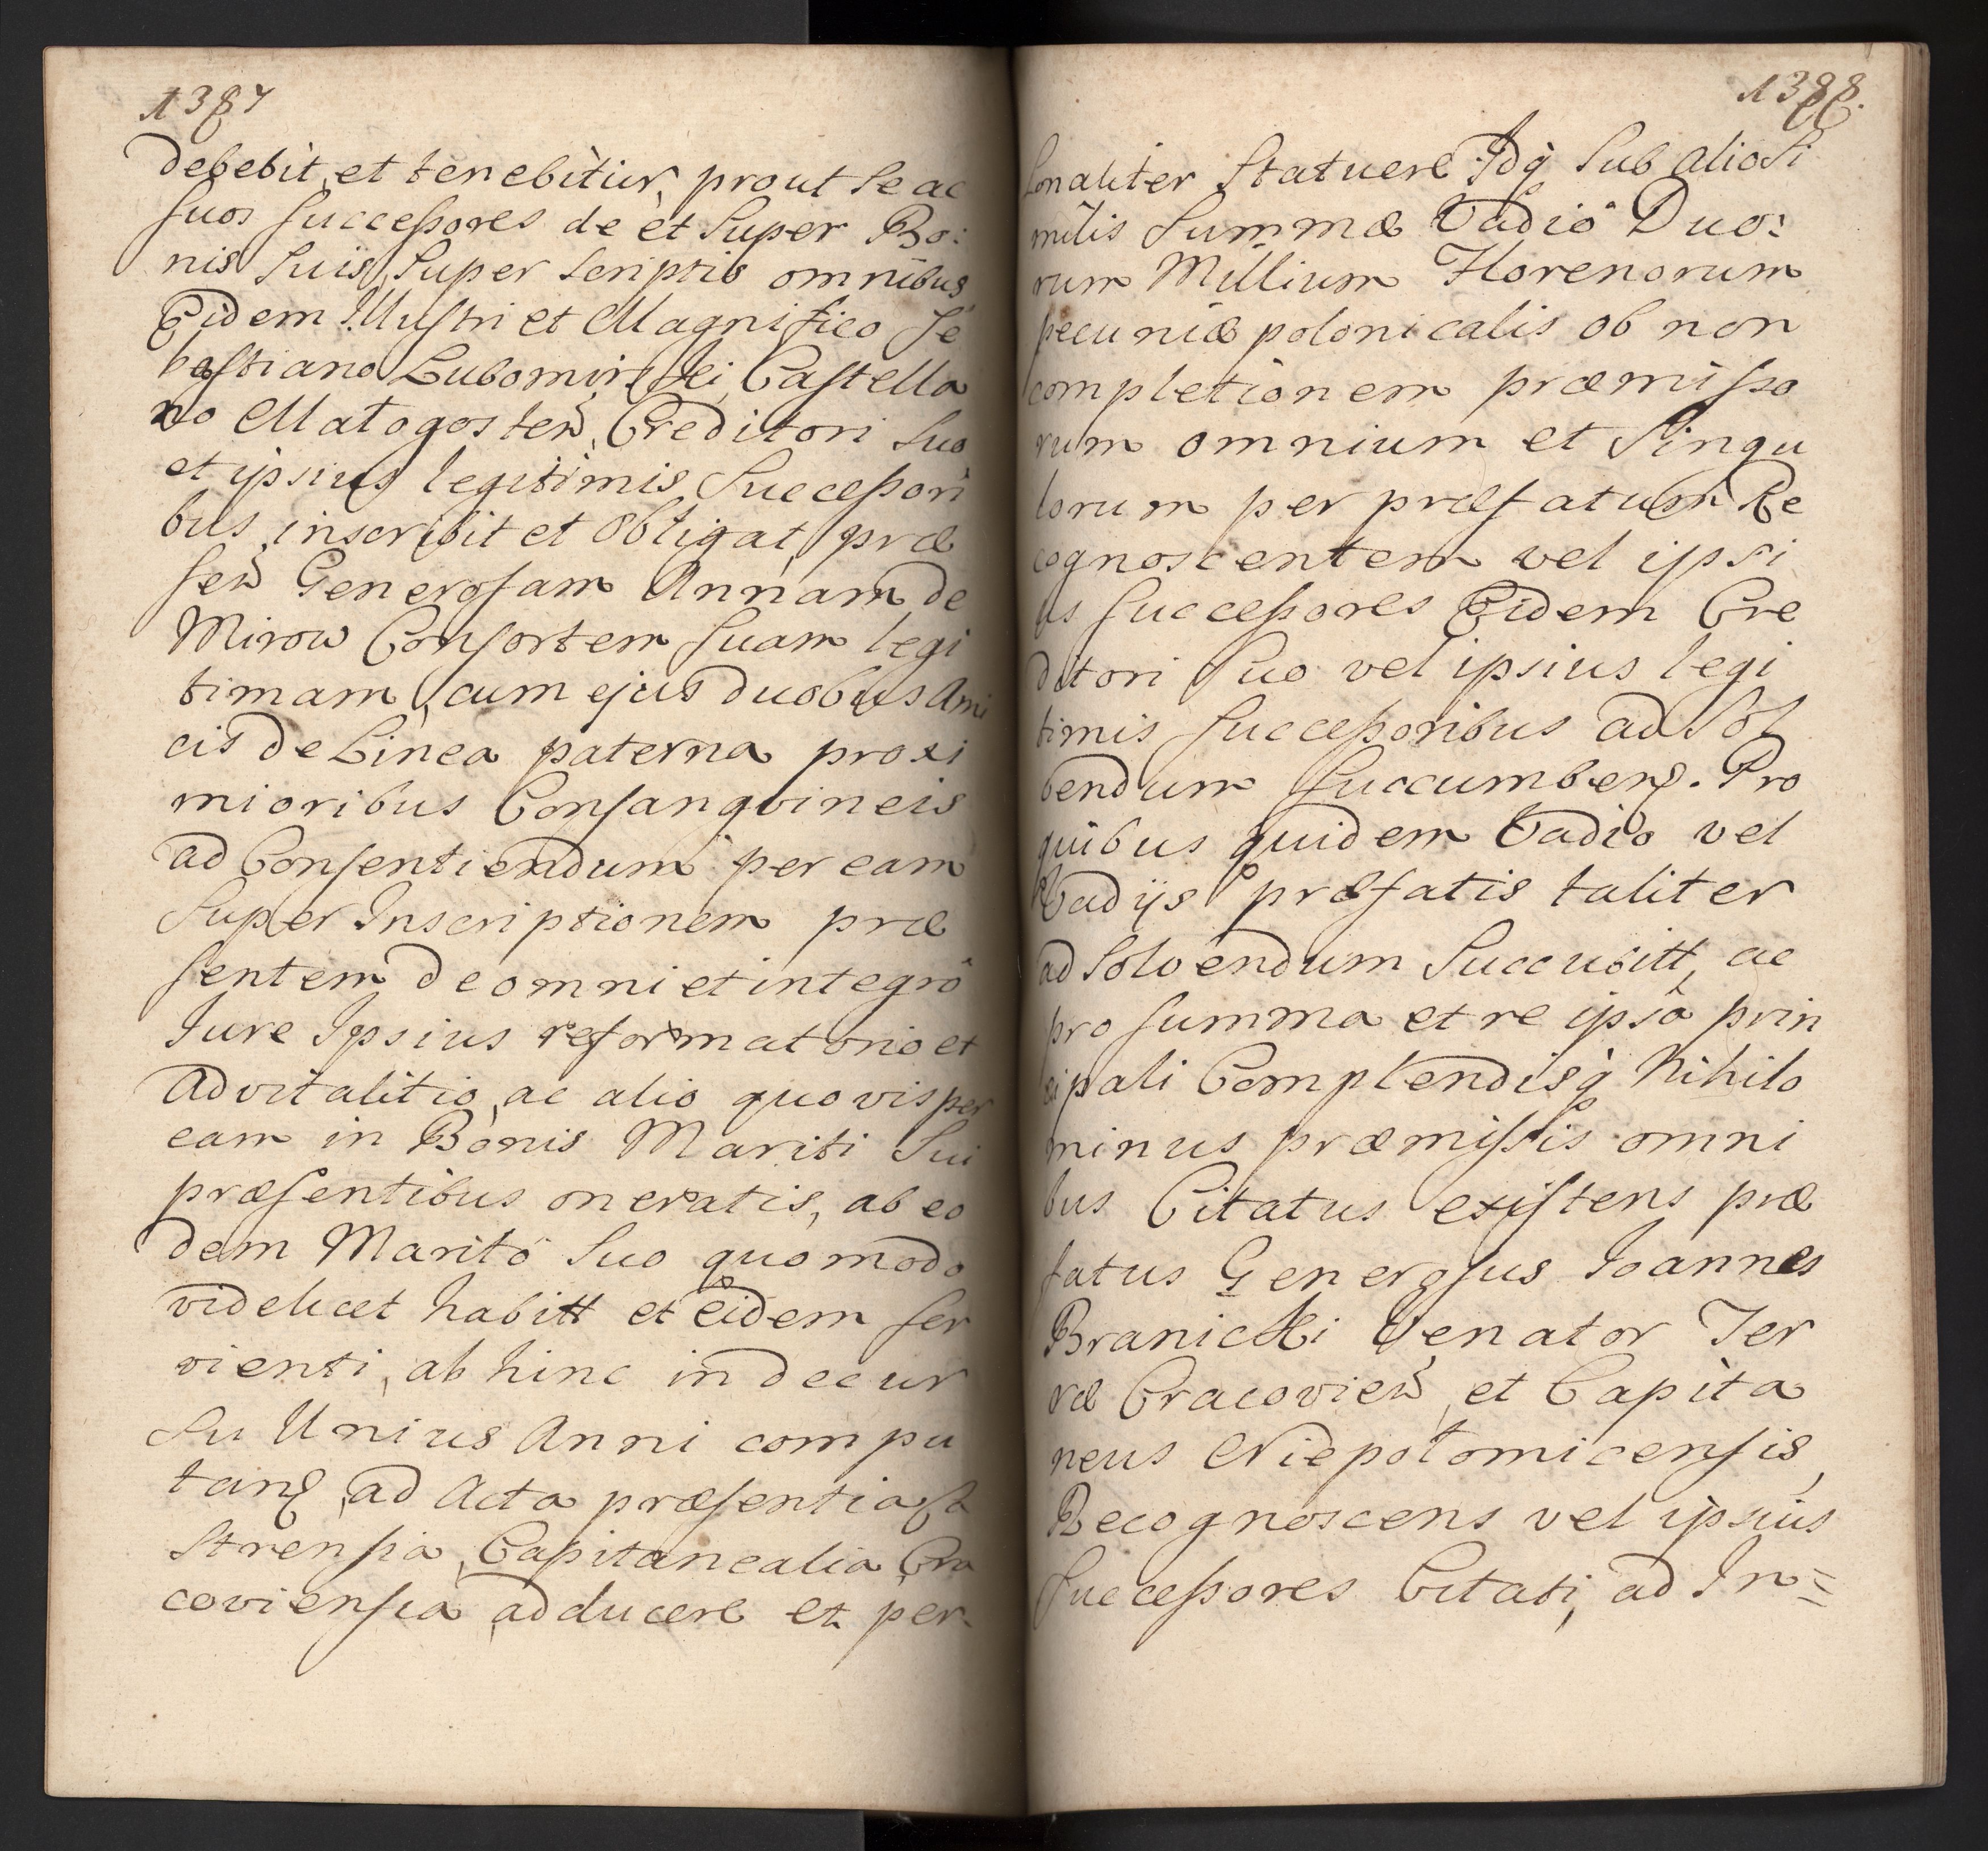 1387
debebit, et tenebitur, prout se ac
suos successores de et super Bo:
nis suis, super scriptis omnibus
Eidem Illustri et Magnifico Se
bastiano Lubomirski, Castella
no Małogosten, Creditori suo
et ipsius legitimis Successori
bus inscribit et obligat, præ
sen Generosam Annam de
Mirow Consortem suam legi
timam, cum ejus duobus Ami
cis de Linea paterna proxi
mioribus Consanguineis
ad Consentiendum per eam
super Inscriptionem præ
sentem de omni et integro
Iure Ipsius reformatorio et
advitalitio, ac alio quovis per
eam in Bonis Mariti sui
præsentibus oneratis, ab eo
dem Marito suo quomodo
videlicet habitt et eidem ser
vienti, ab hinc in decur
su Unius Anni compu
tan, ad Acta præsentia Ca
strensia, Capitanealia Cra
coviensia adducere et per-
1388.
sonaliter statuere Idq sub alio si
milis summæ Vadio Duo:
rum Millium Florenorum
pecuniæ polonicalis ob non
completionem præmisso
rum omnium et singu
lorum per præfatum Re
cognoscentem vel ipsi
us successores Eidem Cre
ditori suo vel ipsius legi
timis successoribus ad sol
vendum succumben. Pro
quibus quidem Vadio vel
Vadijs præfatis taliter
ad solvendum succubitt, ac
pro summa et re ipsa prin
cipali Complendisq Nihilo
minus præmissis omni
bus Citatus existens præ
fatus Generosus Ioannes
Branicki Venator Ter
ræ Cracovien, et Capita
neus Niepołomicensis,
Recognoscens vel ipsius
successores Citati, ad In=